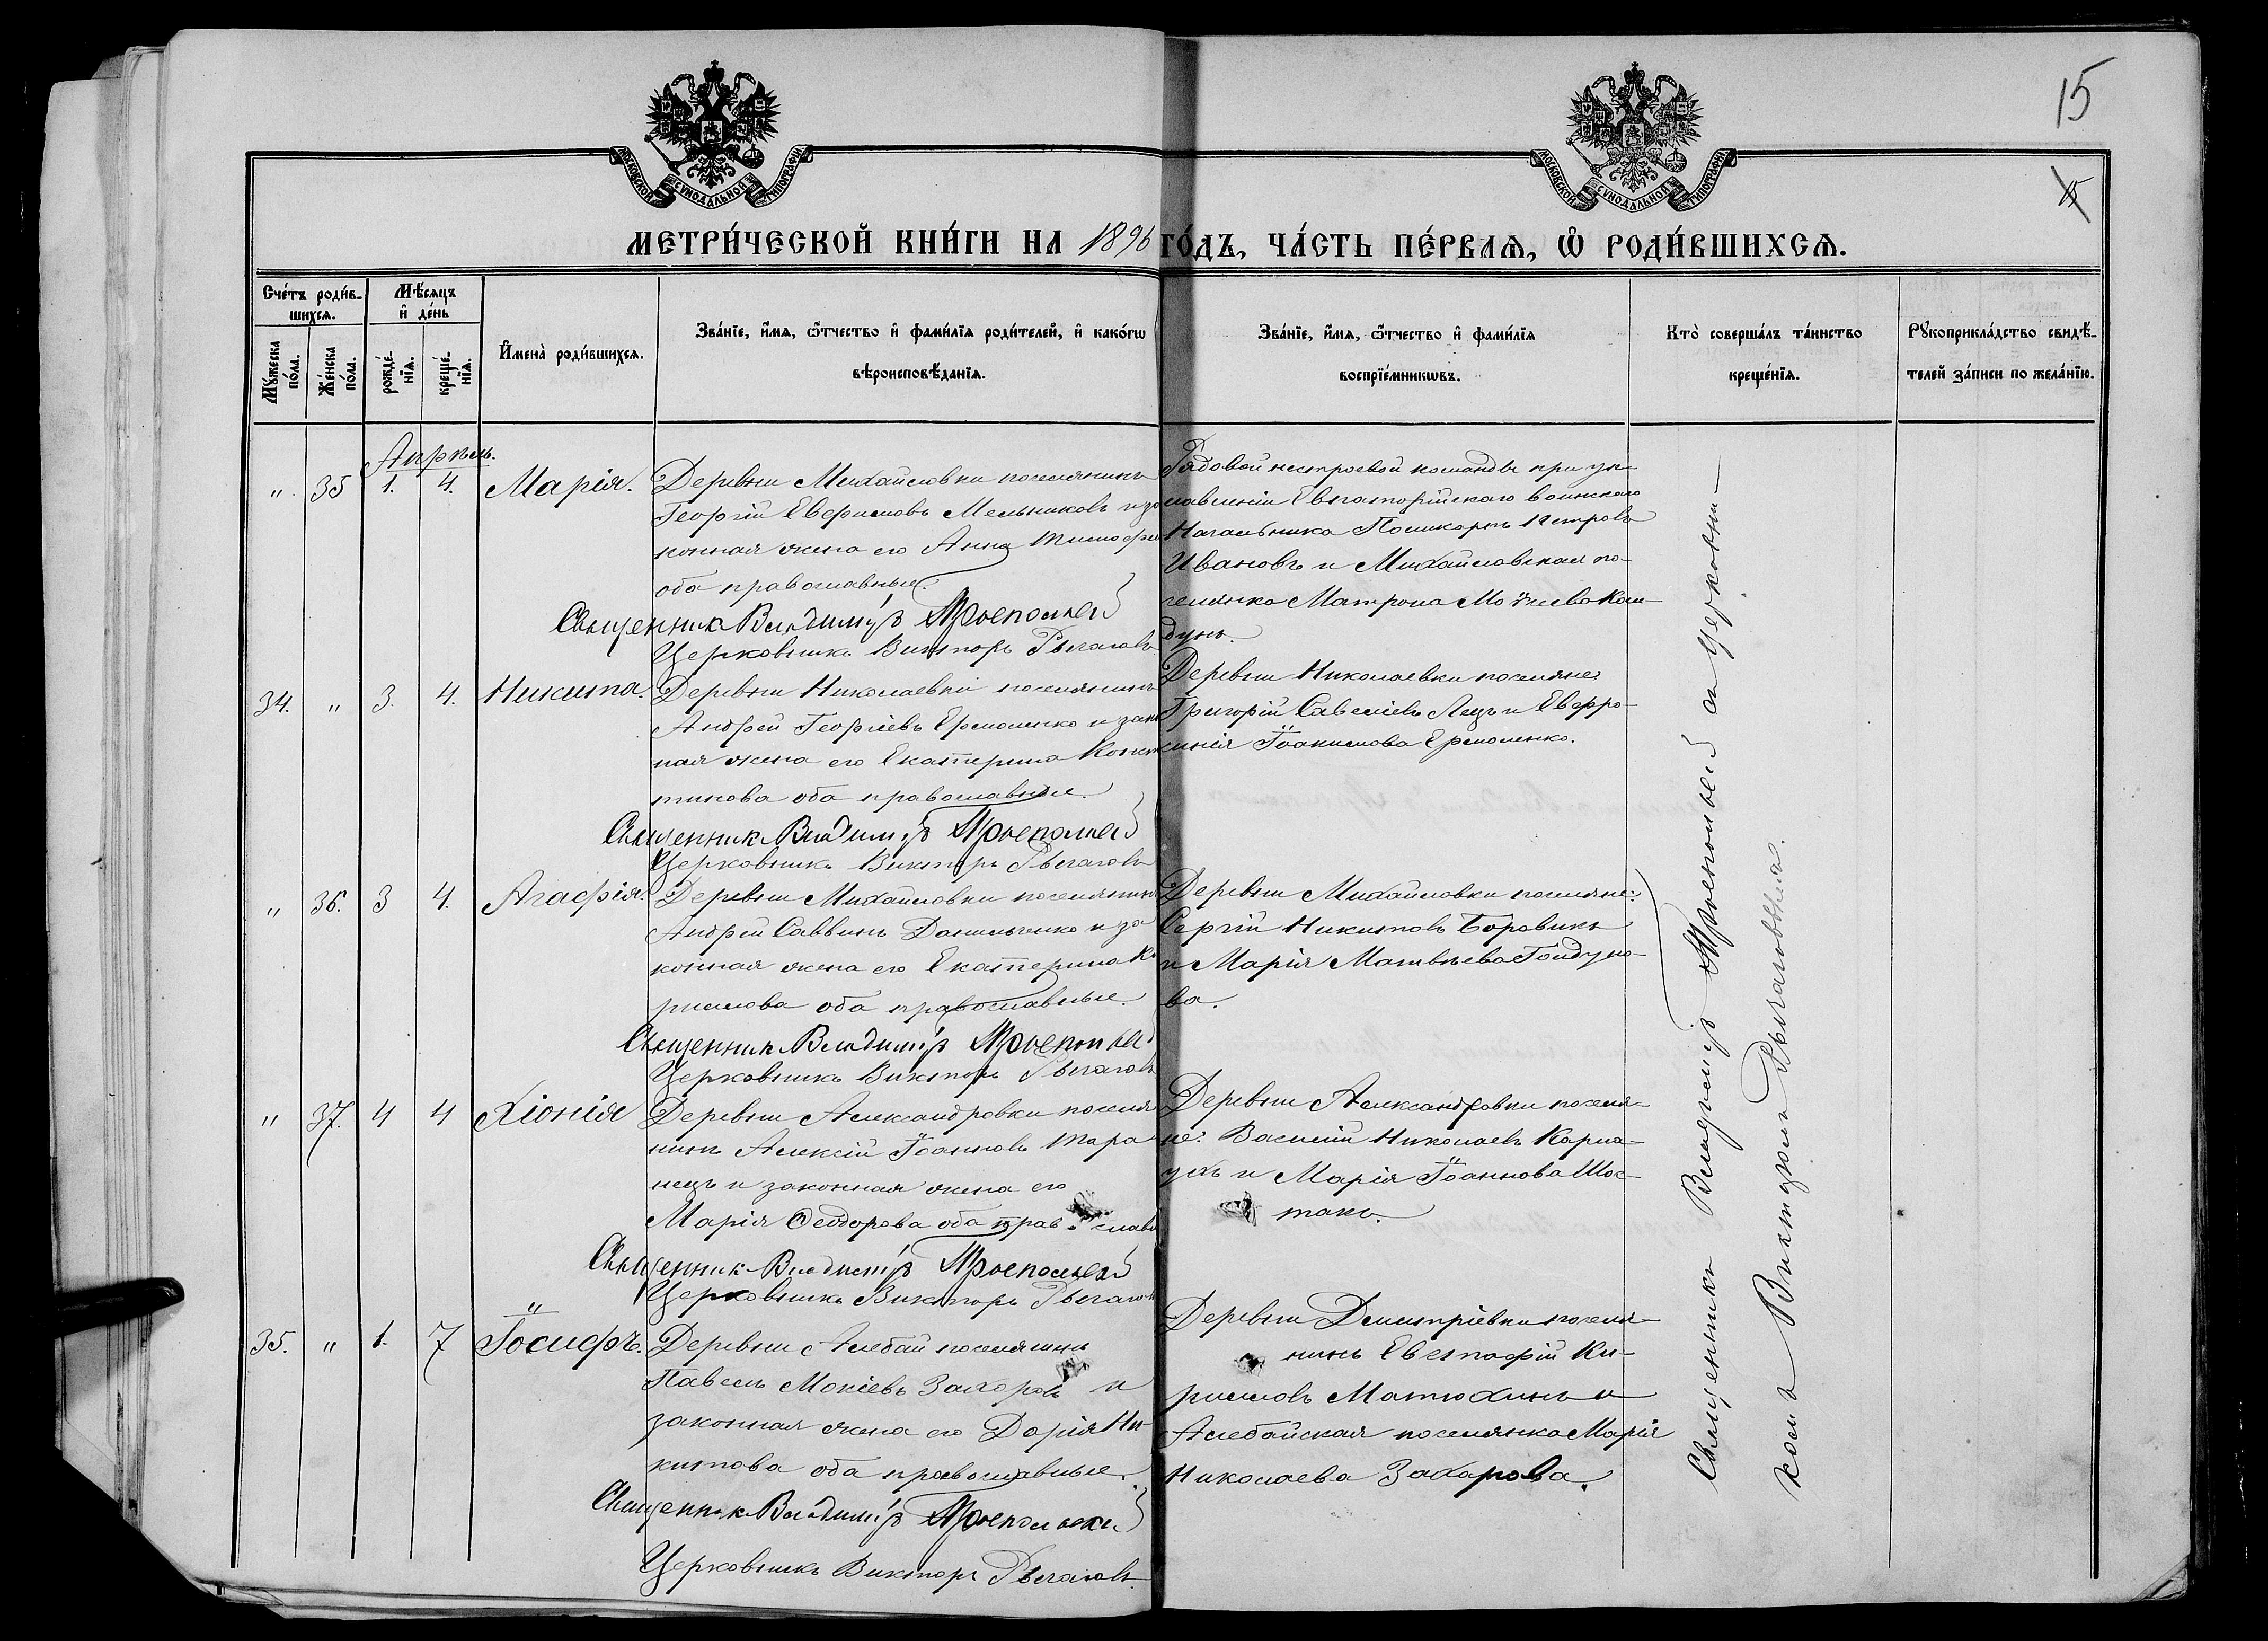 15
15
МОСКОВСКОЙ СѴНОДАЛЬНОЙ ТИПОГРАФІИ
МОСКОВСКОЙ СѴНОДАЛЬНОЙ ТИПОГРАФІИ
МЕТРИ́ЧЕСКОЙ КНИ́ГИ НА 1896 ГО́ДЪ, ЧА́СТЬ ПЕ́РВАѦ, Ѡ РОДИ́ВШИХСѦ.
Сче́тъ роди́в-
шихсѧ.
Мꙋжеска
по́ла.
Же́нска
по́ла.
Мѣ́сѧцъ
и де́нь
рожде́-
нїѧ.
креще́-
нїѧ.
И҆мена̀ роди́вшихсѧ.
Зва́нїе, и҆́мѧ, ѻ҆́тчество и҆ фами́лїѧ роди́телей, и҆ како́гѡ
вѣроисповѣ́данїѧ.
Зва́нїе, и҆́мѧ, ѻ҆́тчество и҆ фами́лїѧ
воспрїе́мникѡвъ.
Кто̀ соверша́лъ та́инство
креще́нїѧ.
Рꙋкоприкла́дство свидѣ́-
телей за́писи по жела́нїю.
Апрѣль.
" 35 1. 4. Марія.
Деревни Михайловки поселянинъ
Георгій Евфимовъ Мельниковъ и за
конная жена его Анна Тимофе
оба православные.
Священникъ Владиміръ Троепольскій
Церковникъ Викторъ Рычаговъ
Рядовой нестроевой команды при уп-
равленіи Евпаторійскаго воинскаго
Начальника Поликарпъ Петровъ
Ивановъ и Михайловская по-
селянка Матрона
дунъ.
34. " 3. 4. Никита.
Деревни Николаевки поселянинъ
Андрей Георгіевъ Ермоленко и закон
ная жена его Екатерина Конст
тинова оба православные.
Священникъ Владиміръ Троепольскій
Церковникъ Викторъ Рычаговъ
Деревни Николаевки поселяне:
Григорій Савеліевъ Лецъ и Евфро-
синія Іоакимова Ермоленко.
" 36. 3 4. Агафія.
Деревни Михайловки поселянинъ
Андрей Саввинъ Данильченко и за
конная жена его Екатерина Ки
рилова оба православные.
Священникъ Владиміръ Троепольскій
Церковникъ Викторъ Рычаговъ
Деревни Михайловки поселяне:
Сергій Никитовъ Боровикъ
и Марія Матвѣева Гойдуко-
ва.
" 37. 4 4 Хіонія
Деревни Александровки поселя
нинъ Алексій Іоанновъ Тара
нецъ и законная жена его
Марія Ѳеодорова оба православн
Священникъ Владиміръ Троепольскій
Церковникъ Викторъ Рычаговъ
Деревни Александровки поселя-
не: Василій Николаевъ Карна-
ухъ и Марія Іоаннова Шос-
такъ.
35. " 1. 7 Іосифъ.
Деревни Алебай поселянинъ
Павелъ Мокіевъ Захаровъ и
законная жена его Дарія Ни-
китова оба православные.
Священникъ Владиміръ Троепольскій
Церковникъ Викторъ Рычаговъ.
Деревни Димитріевки поселя-
нинъ Евстафій Ки-
рилловъ Матюхинъ и
Алебайская поселянка Марія
Николаева Захарова.
Священникъ Владиміръ Троепольскій съ Церковни-
комъ Викторомъ Рычаговымъ.